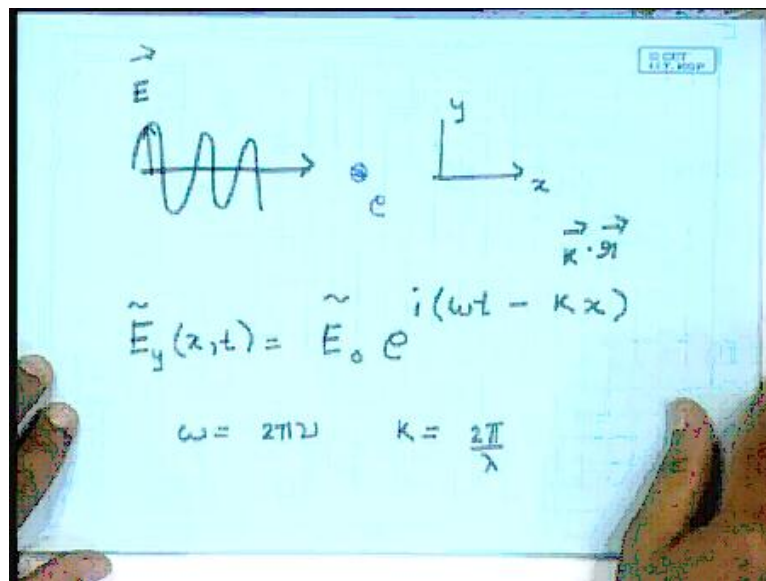 © CET
I.I.T. KGP
E⃗
y
x
e
k⃗ · r⃗
Ẽ_y (x,t) = Ẽ_0 e^{i(ωt - kx)}
ω = 2πν    k = 2π/λ